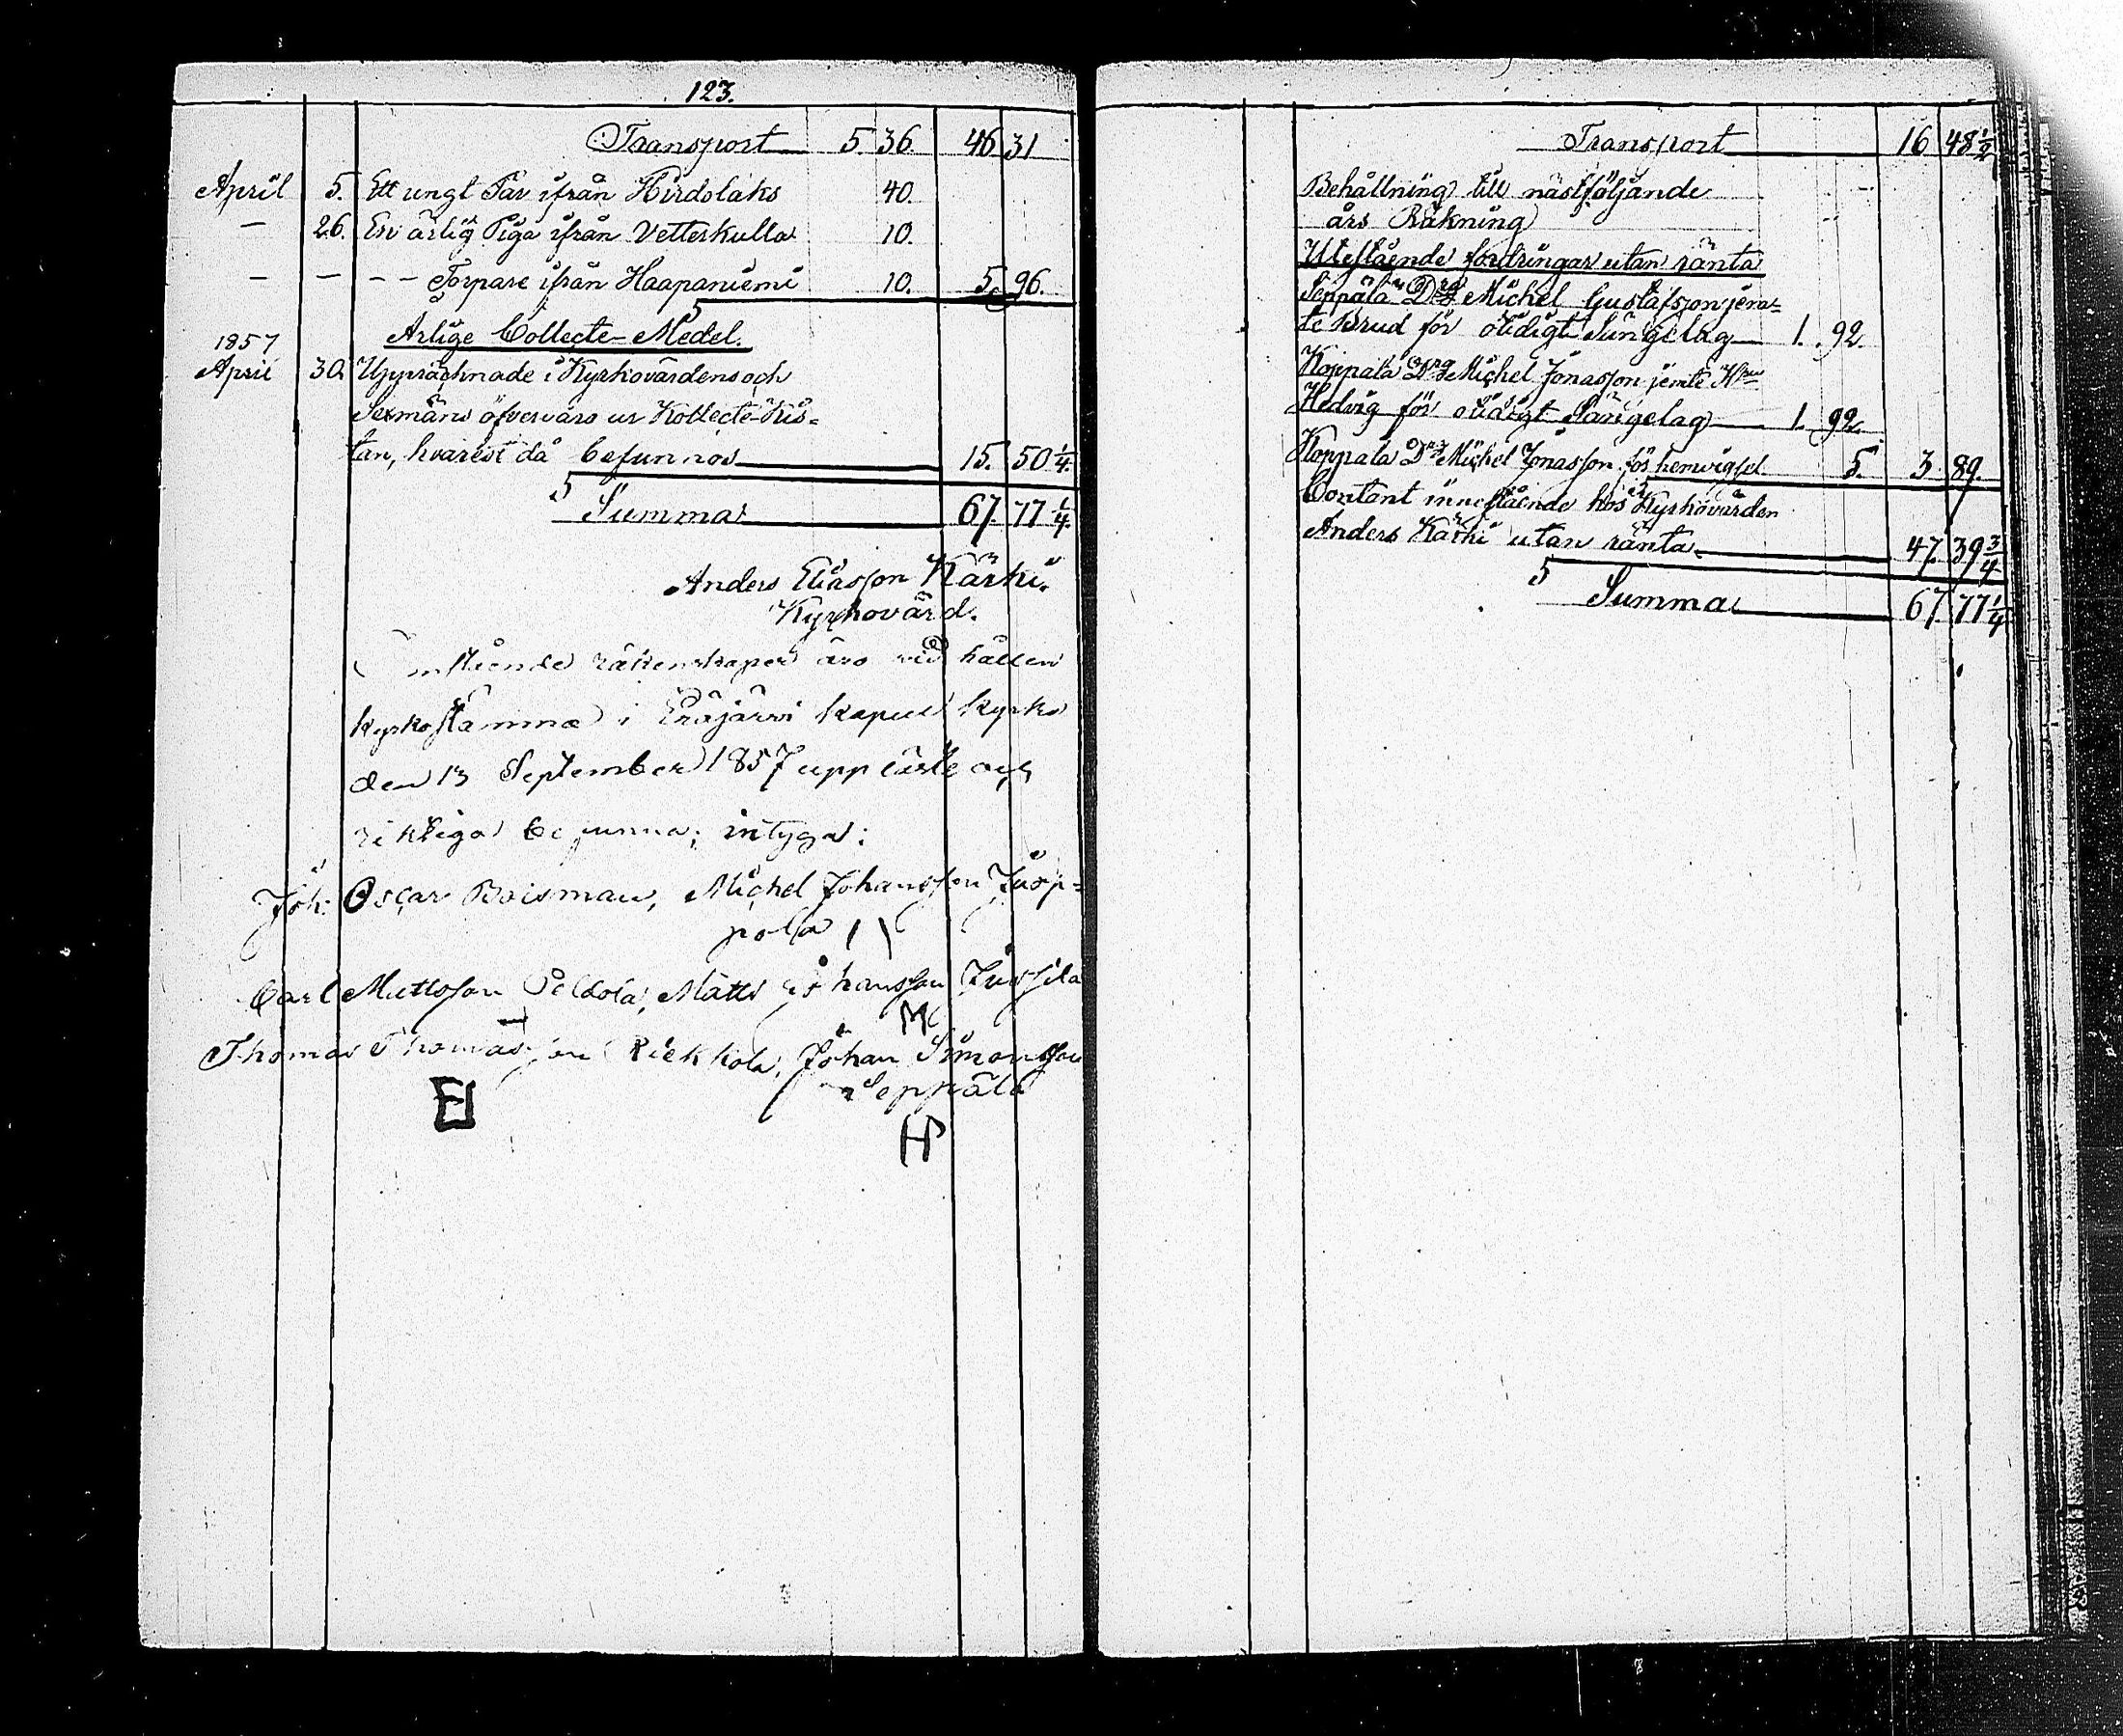 123.
Transport 5. 36. 46 31
April 5. Ett ungt Par ifrån Hirdolaks 40.
— 26. En ärlig Piga ifrån Vetterkulla 10.
— — — — Torpare ifrån Haapaniemi 10. 5 96.
1857 Årlige Collecte-Medel.
April 30. Upprächnade i Kyrkovärdens och
Sexmäns öfvervaro ur Kollecte-Kis-
tan, hvarest då befunnos 15. 50 1/4.
Summa 67. 77 1/4.
Anders Eliasson Kärki.
Kyrkovärd.
räkenskaper äro vid hållen
kyrkostämma i Eräjärvi kapell kyrka
den 13 September 1857 uppläste och
riktiga befunna; intyga:
Joh: Oscar Roisman, Michel Johansson Jusp-
pola
Carl Mattsson Peldola, Matts Johansson Jussila
Thomas Thomasson Riekkola, Johan Simonsson
Seppälä
Transport 16 48 1/2
Behållning till nästföljande
års Räkning
Utestående fordringar utan ränta
Seppälä Drg Michel Gustafsson jem-
te Brud för otidigt Sängelag 1. 92.
Koppala Drg Michel Jonasson jemte H
Hedvig för otidigt Sängelag 1. 92.
Koppala Drg Michel Jonasson för hemvigsel 5. 3. 89.
Contant innestående hos Kyrkovärden
Anders Kärki utan ränta 47. 39 3/4
Summa 67. 77 1/4